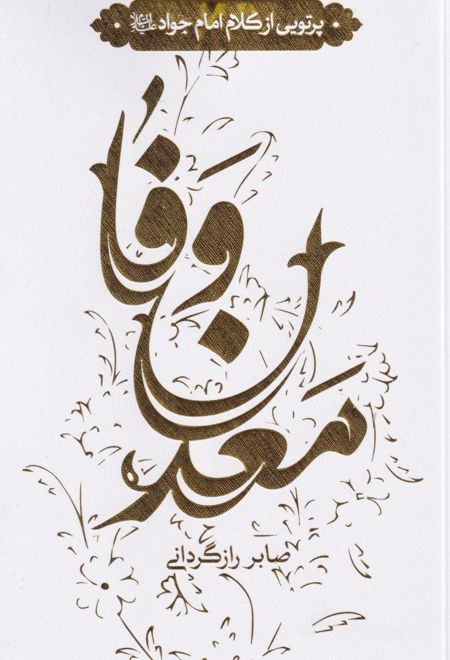 پرتویی از کلام امام جواد علیه‌السلام
معدن وفا
صابر رازگردانی